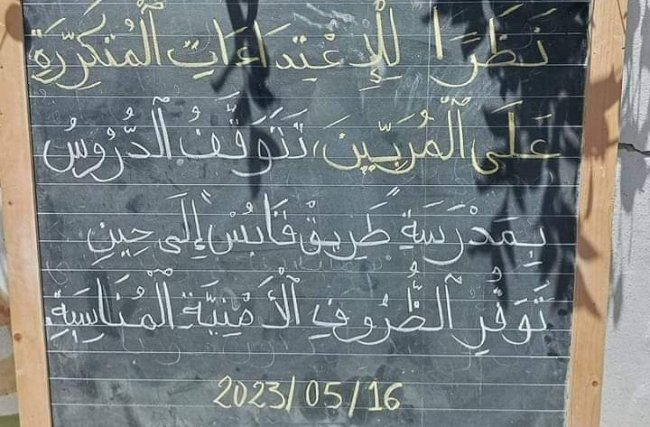 نَظَرًا لِلْاِعْتِدَاءَاتِ ٱلْمُتَكَرِّرَةِ
عَلَى ٱلْمُرَبِّينَ، تَتَوَقَّفُ ٱلدُّرُوسُ
بِمَدْرَسَةِ "طَرِيقْ قَابُسْ" إِلَى حِينِ
تَوَفُّرِ ٱلظُّرُوفِ ٱلْأَمْنِيَّةِ ٱلْمُنَاسِبَةِ
2023/05/16